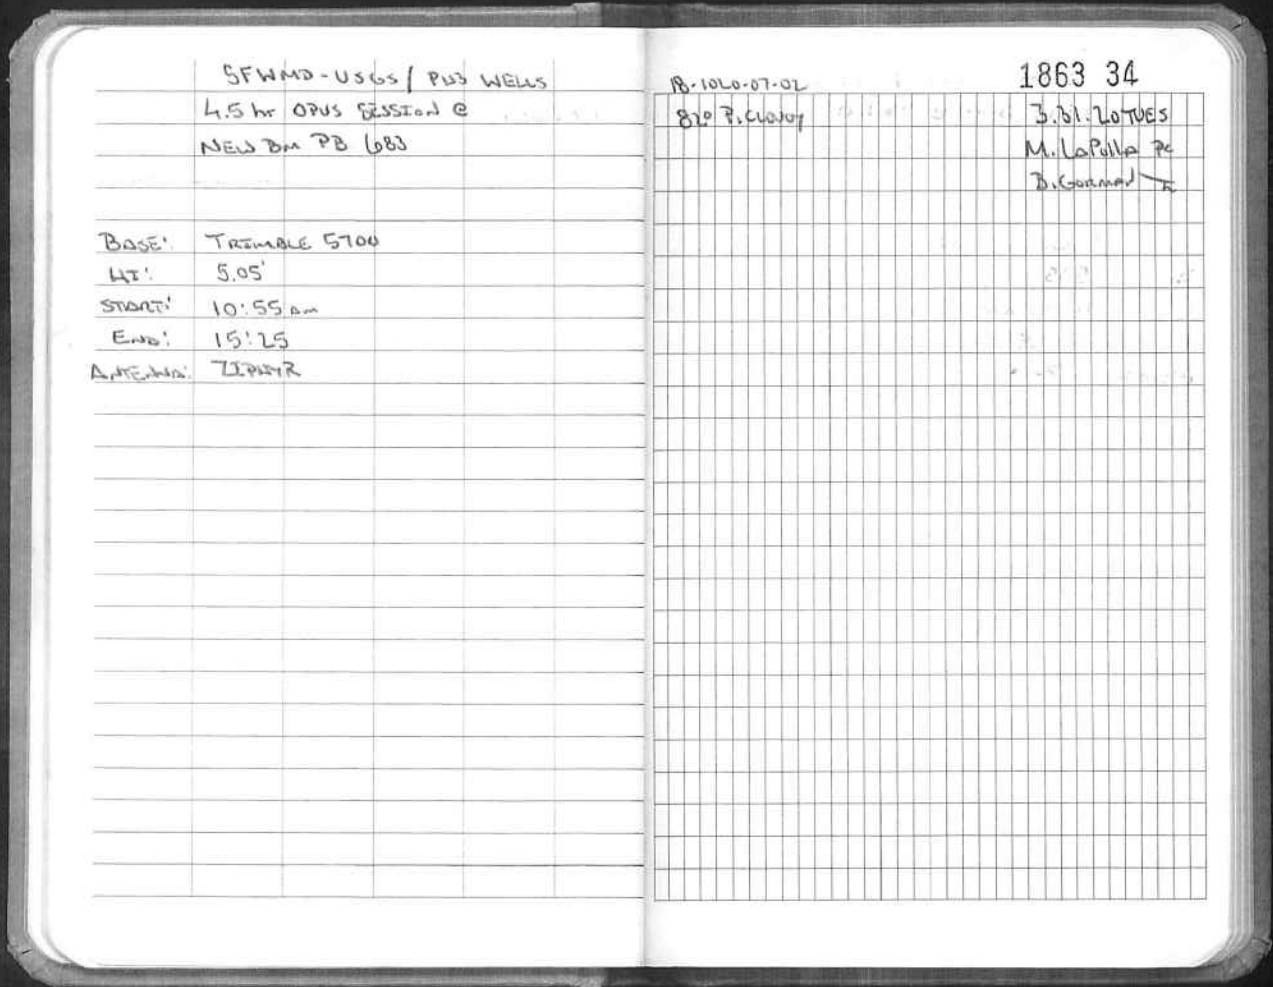 SFWMD-USGS/ PWS WELLS
4.5 hr OPUS SESSION @
NEW BM PB 683
BASE: TRIMBLE 5700
HI: 5.05'
START: 10:55 am
END: 15:25
ANTENNA: ZEPHYR
18-1020-07-02
1863 34
82° P. CLOUDY
3.31.20 TUES
M. LaPolla PC
B. GORMAN